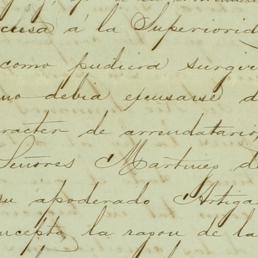 á la Superiorid
como pudiera surgir
no debia escusarse d
racter de arrendatario
Señores Martinez de
su apoderado Artiga
ncepto la razon de la